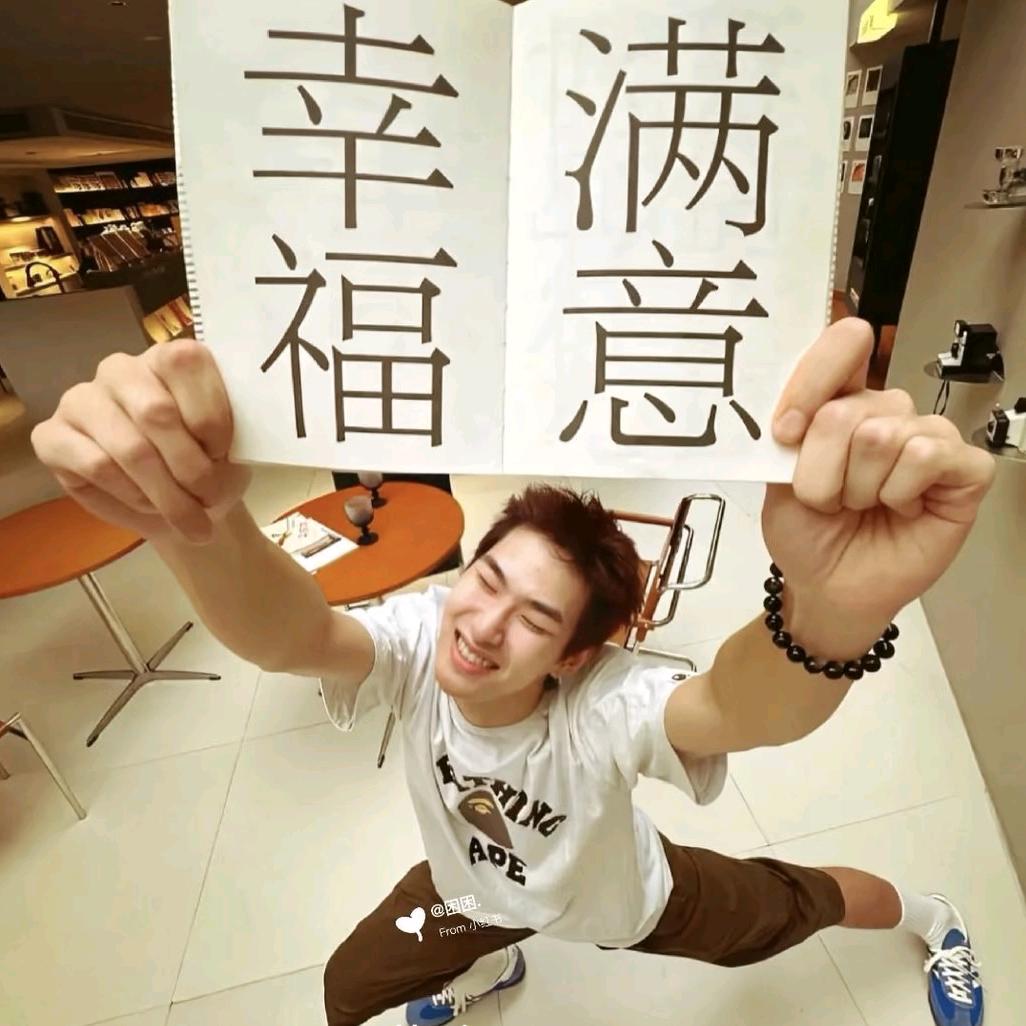 幸福
满意
A BATHING
APE
@困困.
From 小红书